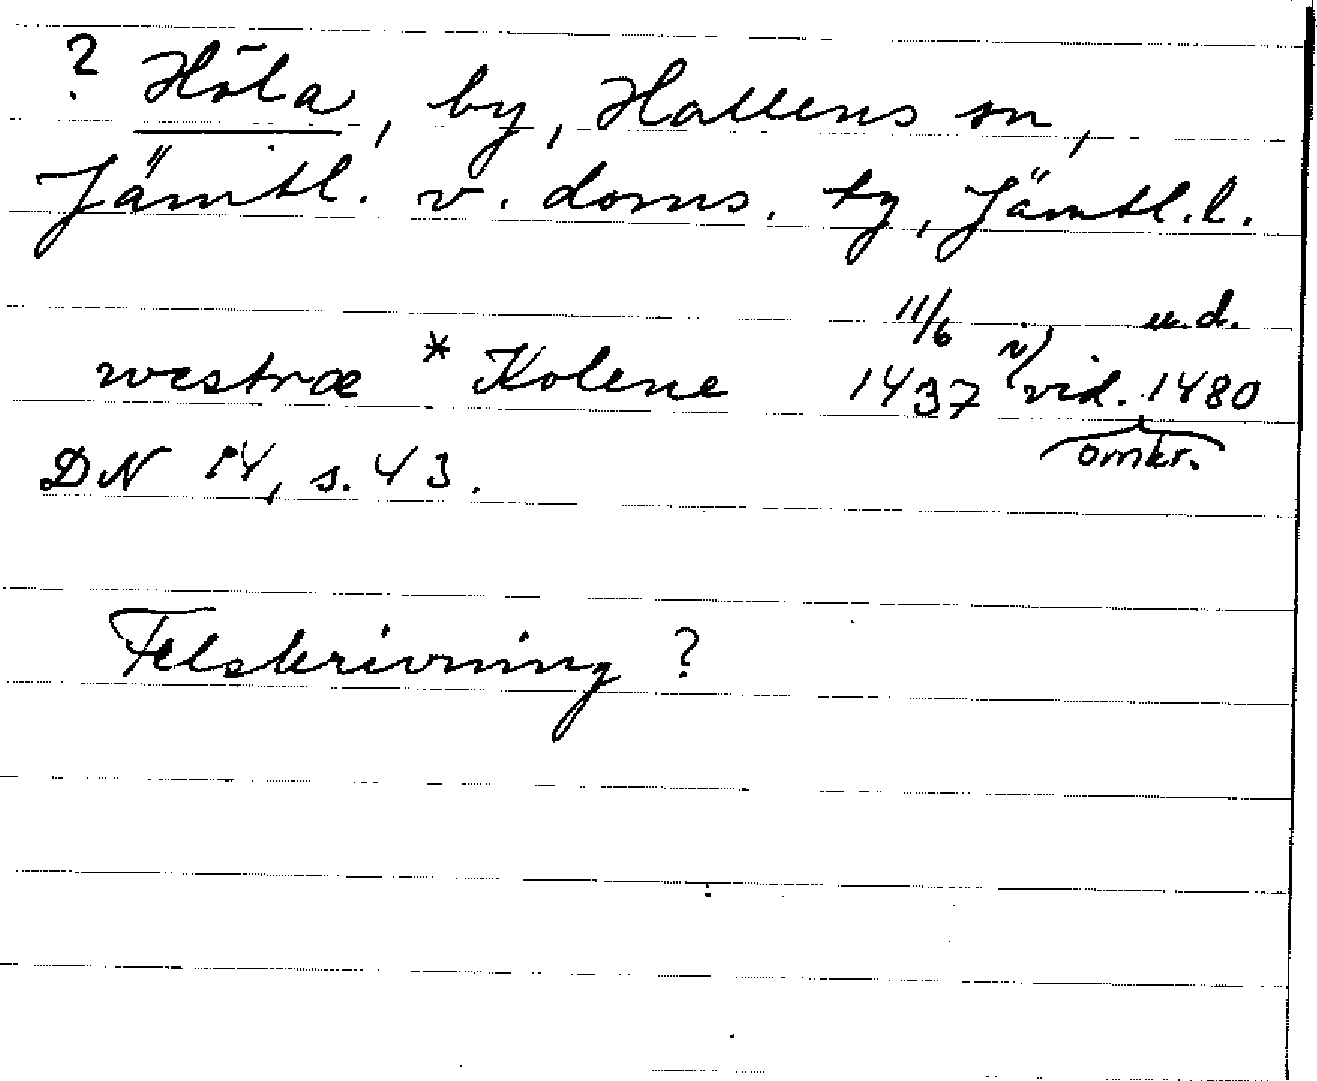 ? Höla, by, Hallens sn,
Jämtl. v. doms. tg, Jämtl.l.
westræ * Kolene 11/6 1437 i vid. u.d. 1480
omkr.
DN 14, s. 43.
Felskrivning ?